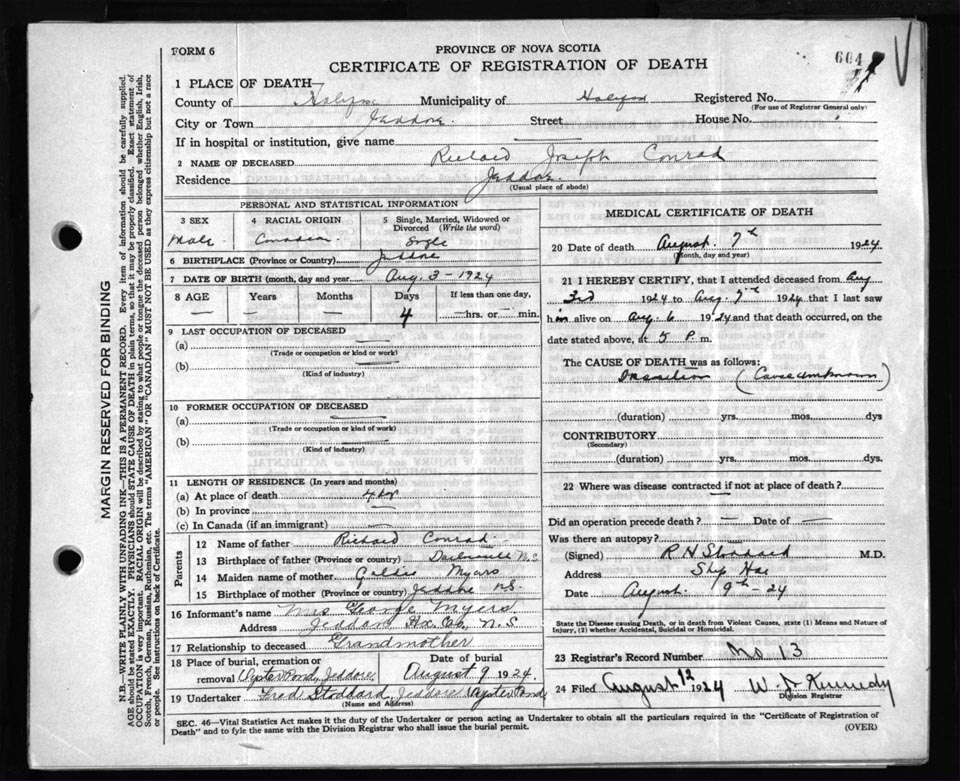 FORM 6
PROVINCE OF NOVA SCOTIA
CERTIFICATE OF REGISTRATION OF DEATH
604
1 PLACE OF DEATH—
County of Halifax Municipality of Halifax Registered No.
(For use of Registrar General only)
City or Town Jeddore Street House No.
If in hospital or institution, give name
2 NAME OF DECEASED Richard Joseph Conrad
Residence Jeddore
(Usual place of abode)
PERSONAL AND STATISTICAL INFORMATION
3 SEX 4 RACIAL ORIGIN 5 Single, Married, Widowed or Divorced (Write the word)
Male Canadian Single
6 BIRTHPLACE (Province or Country) Jeddore
7 DATE OF BIRTH (month, day and year) Aug 3 – 1924
8 AGE Years Months Days If less than one day,
— 4 — hrs. or — min.
9 LAST OCCUPATION OF DECEASED
(a) —
(Trade or occupation or kind or work)
(b) —
(Kind of industry)
10 FORMER OCCUPATION OF DECEASED
(a) —
(Trade or occupation or kind of work)
(b) —
(Kind of industry)
11 LENGTH OF RESIDENCE (In years and months)
(a) At place of death 4
(b) In province —
(c) In Canada (if an immigrant) —
Parents
12 Name of father Richard Conrad
13 Birthplace of father (Province or country) N.S
14 Maiden name of mother Goldie Myers
15 Birthplace of mother (Province or country) Jeddore N.S.
16 Informant's name Mrs George Myers
Address Jeddore Hx. Co., N.S.
17 Relationship to deceased Grandmother
18 Place of burial, cremation or removal Oyster Pond, Jeddore Date of burial August 9 1924
19 Undertaker Fred Stoddard, Jeddore Oyster Pond
(Name and Address)
MEDICAL CERTIFICATE OF DEATH
20 Date of death August 7th 1924
(Month, day and year)
21 I HEREBY CERTIFY, that I attended deceased from Aug
3rd 1924 to Aug 7th 1924 that I last saw
him alive on Aug 6 1924 and that death occurred, on the
date stated above, at 5 P. m.
The CAUSE OF DEATH was as follows:
Inanition (Cause unknown)
(duration) yrs. mos. dys
CONTRIBUTORY
(Secondary)
(duration) yrs. mos. dys.
22 Where was disease contracted if not at place of death?
—
Did an operation precede death? — Date of —
Was there an autopsy? —
(Signed) R H Stoddard M.D.
Address Ship Har
Date August 9th – 24
State the Disease causing Death, or in death from Violent Causes, state (1) Means and Nature of
Injury, (2) whether Accidental, Suicidal or Homicidal.
23 Registrar's Record Number No 13
24 Filed August 12 1924 W. J. Kennedy
Division Registrar
SEC. 46—Vital Statistics Act makes it the duty of the Undertaker or person acting as Undertaker to obtain all the particulars required in the "Certificate of Registration of
Death" and to fyle the same with the Division Registrar who shall issue the burial permit.
(OVER)
MARGIN RESERVED FOR BINDING
N.B.—WRITE PLAINLY WITH UNFADING INK—THIS IS A PERMANENT RECORD. Every item of information should be carefully supplied.
AGE should be stated EXACTLY. PHYSICIANS should STATE CAUSE OF DEATH in plain terms, so that it may be properly classified. Exact statement of
OCCUPATION is very important. RACIAL ORIGIN will be described by stating to what people or tongue the deceased person belonged whether English, Irish,
Scotch, French, German, Russian, Ruthenian, etc. The terms "AMERICAN" OR "CANADIAN" MUST NOT BE USED as they express citizenship but not a race
or people. See instructions on back of Certificate.